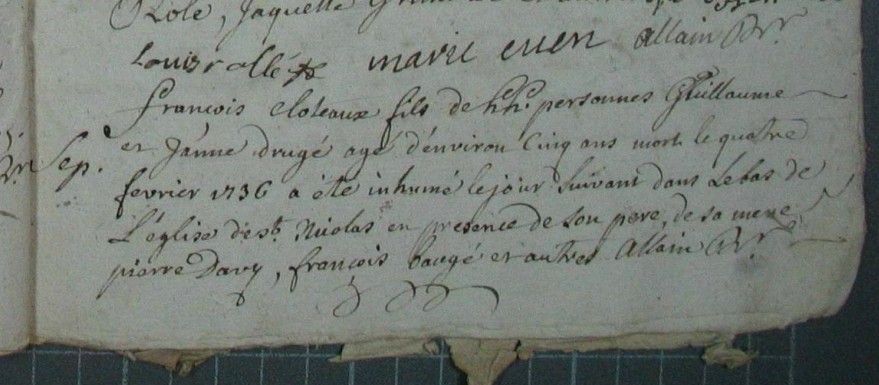 Role, Jaquette
Louis rollé marie euen allain Ptr.
françois cloteaux fils de hh. personnes Guillaume
Sep. et Janne drugé agé d'environ Cinq ans mort le quatre
fevrier 1736 a été inhumé le jour Suivant dans Le bas de
L'église de st. Nicolas en presence de Son pere, de sa mere
pierre Davy, françois baugé et autres allain Ptr.